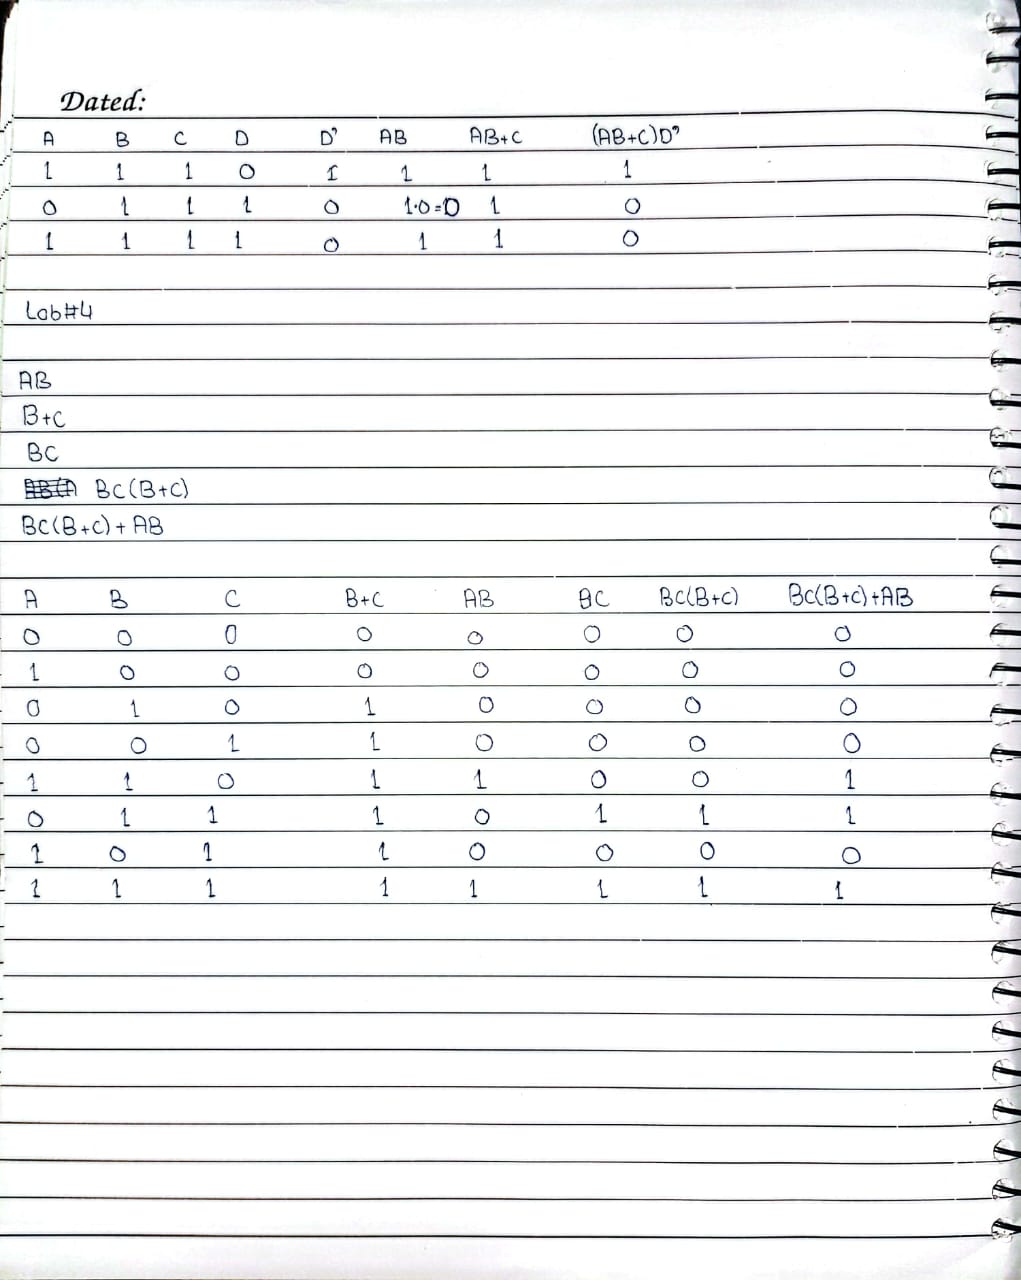 Dated:
A B C D D' AB AB+C (AB+C)D'
1 1 1 0 1 1 1 1
0 1 1 1 0 1·0=0 1 0
1 1 1 1 0 1 1 0
Lab#4
AB
B+C
BC
BC(B+C)
BC(B+C)+AB
A B C B+C AB BC BC(B+C) BC(B+C)+AB
0 0 0 0 0 0 0 0
1 0 0 0 0 0 0 0
0 1 0 1 0 0 0 0
0 0 1 1 0 0 0 0
1 1 0 1 1 0 0 1
0 1 1 1 0 1 1 1
1 0 1 1 0 0 0 0
1 1 1 1 1 1 1 1